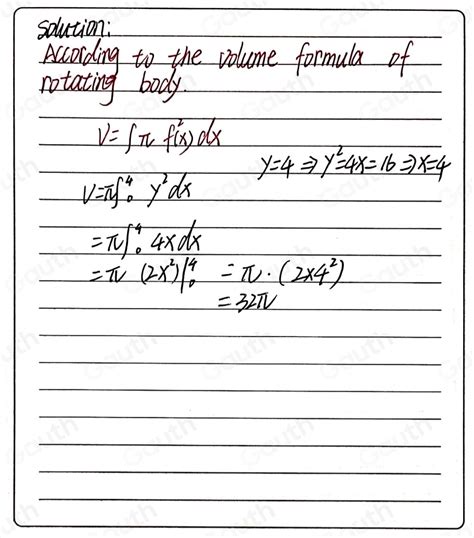 Solution:
According to the volume formula of
rotating body.
V=∫π f²(x)dx
y=4 ⇒ y²=4x=16 ⇒ x=4
V=π∫₀⁴ y²dx
=π∫₀⁴ 4xdx
=π (2x²)|₀⁴ =π·(2×4²)
=32π